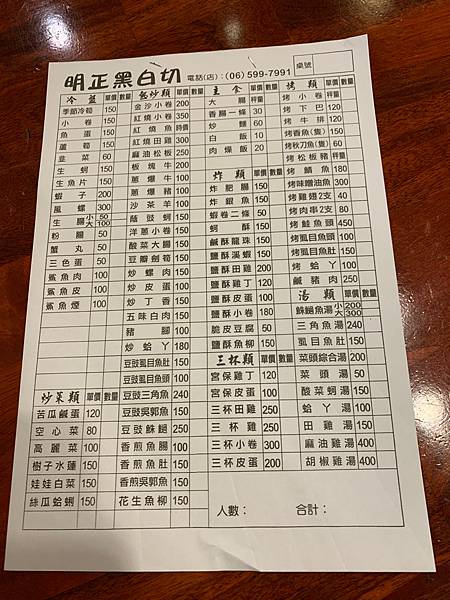 明正黑白切 電話(店):(06) 599-7991 桌號
冷盤 單價 數量
季節冷筍 150
小卷 150
魚蛋 150
蘆筍 150
韭菜 60
生蚵 150
生魚片 150
蝦子 200
風螺 300
生腸 小 50 大 100
粉腸 50
蟹丸 50
三色蛋 50
鯊魚肉 100
鯊魚皮 100
鯊魚煙 100
炒菜類 單價 數量
苦瓜鹹蛋 120
空心菜 80
高麗菜 100
樹子水蓮 150
娃娃白菜 150
絲瓜蛤蜊 150
熱炒類 單價 數量
金沙小卷 200
紅燒小卷 350
紅燒魚 時價
紅燒田雞 300
麻油松板 250
板塊牛 200
蔥爆牛 100
蔥爆豬 100
沙茶羊 100
蔭豉蚵 150
洋蔥小卷 150
酸菜大腸 150
豆瓣劍筍 150
炒螺肉 150
炒皮蛋 100
炒丁香 150
五味白肉 150
豬腳 100
炒蛤丫 180
豆豉虱目魚肚 150
豆豉虱目魚頭 100
豆豉三角魚 240
豆豉吳郭魚 150
豆豉鮢鮸 250
香煎魚腸 100
香煎魚肚 150
香煎吳郭魚 150
花生魚柳 150
主食 單價 數量
大腸 秤量
香腸一條 30
炒麵 60
白飯 10
肉燥飯 20
炸類 單價 數量
炸肥腸 150
炸銀魚 150
蝦卷二條 50
蚵酥 150
鹹酥龍珠 150
鹽酥溪蝦 150
鹽酥田雞 200
鹽酥雞丁 120
鹽酥皮蛋 100
鹽酥小卷 180
脆皮豆腐 50
鹽酥魚柳 150
三杯類 單價 數量
宮保雞丁 120
宮保皮蛋 100
三杯田雞 250
三杯雞 250
三杯小卷 300
三杯皮蛋 200
烤類 單價 數量
烤小卷 秤量
烤下巴 120
烤牛排 120
烤香魚(隻) 150
烤秋刀魚(隻) 60
烤松板豬 秤量
烤鯖魚 180
烤味噌油魚 300
烤雞翅2支 40
烤肉串2支 80
烤鮭魚頭 450
烤虱目魚頭 100
烤虱目魚肚 150
烤蛤丫 100
鹹豬肉 250
湯類 單價 數量
鮢鮸魚湯 小 200 大 300
三角魚湯 240
虱目魚肚 150
菜頭綜合湯 200
菜頭湯 50
酸菜蚵湯 150
蛤丫湯 100
田雞湯 150
麻油雞湯 400
胡椒雞湯 400
人數: 合計: